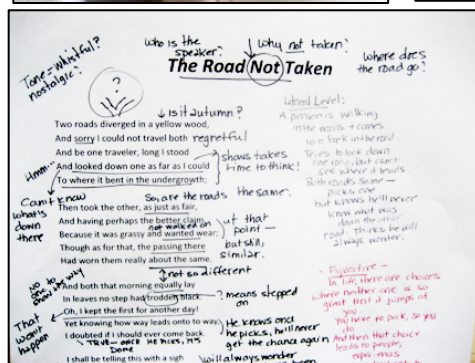 who is the speaker?
why not taken?
where does the road go?
Tone = Whistful? nostalgic?
The Road Not Taken
?
↓ Is it autumn?
Two roads diverged in a yellow wood,
And sorry I could not travel both
regretful
And be one traveler, long I stood
And looked down one as far as I could
To where it bent in the undergrowth;
shows takes time to think!
Hmm...
Can't know what's down there
So, are the roads the same?
Then took the other, as just as fair,
And having perhaps the better claim,
not walked on
Because it was grassy and wanted wear;
Though as for that, the passing there
Had worn them really about the same.
up to that point —
but still, similar.
not so different
And both that morning equally lay
In leaves no step had trodden black
? means stepped on
Oh, I kept the first for another day!
Yet knowing how way leads onto way,
I doubted if I should ever come back.
He knows once he picks, he'll never get the chance again
No way to know?
That won't happen
TRUE — once he picks, it's done
I shall be telling this with a sigh
will always wonder
Literal Level:
A person is walking
in the woods + comes
to a fork in the road.
Tries to look down
one road, but can't
see where it leads.
Both roads same —
picks one
but knows he'll never
know what was
down the other
road. Thinks he will
always wonder.
- Figurative -
In life, there are choices
where neither one is so
great that it jumps at
you.
You have to pick, so you do.
And then that choice
leads to people,
experiences